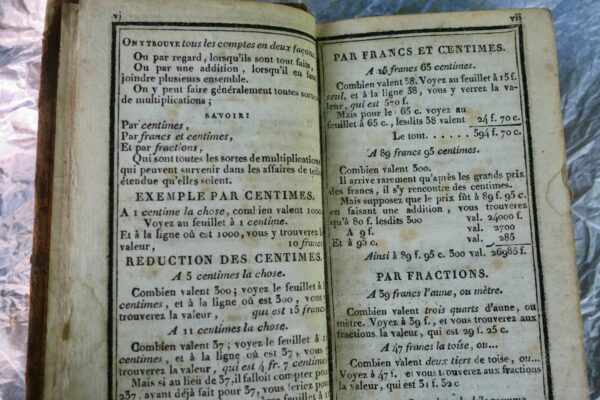 vj
ON TROUVE tous les comptes en deux façons
Ou par regard, lorsqu'ils sont tout faits,
Ou par une addition, lorsqu'il en faut
joindre plusieurs ensemble.
On y peut faire généralement toutes sortes
de multiplications;
SAVOIR:
Par centimes,
Par francs et centimes,
Et par fractions,
Qui sont toutes les sortes de multiplications
qui peuvent survenir dans les affaires de telle
étendue qu'elles soient.
EXEMPLE PAR CENTIMES.
A 1 centime la chose, combien valent 1000.
Voyez au feuillet à 1 centime.
Et à la ligne où est 1000, vous y trouverez la
valeur, 10 francs
REDUCTION DES CENTIMES.
A 5 centimes la chose.
Combien valent 300; voyez le feuillet à 5
centimes, et à la ligne où est 300, vous
trouverez la valeur, qui est 15 francs
A 11 centimes la chose.
Combien valent 37; voyez le feuillet à 11
centimes, et à la ligne où est 37, vous
trouverez la valeur, qui est 4 fr. 7 centimes
Mais si au lieu de 37, il falloit compter pour
237, avant déjà fait pour 37, vous feriez pour
vij
PAR FRANCS ET CENTIMES.
A 15 francs 65 centimes.
Combien valent 38. Voyez au feuillet à 15 f.
seul, et à la ligne 38, vous y verrez la va-
leur, qui est 570 f.
Mais pour les 65 c. voyez au
feuillet à 65 c., lesdits 38 valent 24 f. 70 c.
Le tout. . . . . . 594 f. 70 c.
A 89 francs 95 centimes.
Combien valent 300.
Il arrive rarement qu'après les grands prix
des francs, il s'y rencontre des centimes.
Mais supposez que le prix fût à 89 f. 95 c.
en faisant une addition, vous trouverez
qu'à 80 f. lesdits 300 val. 24000 f.
A 9 f. val. 2700
Et à 95 c. val. 285
Ainsi à 89 f. 95 c. 300 val 26985 f.
PAR FRACTIONS.
A 39 francs l'aune, ou mètre.
Combien valent trois quarts d'aune, ou
mètre. Voyez à 39 f., et vous trouverez aux
fractions la valeur, qui est 29 f. 25 c.
A 47 francs la toise, ou...
Combien valent deux tiers de toise, ou...
Voyez à 47 f. et vous trouverez aux fractions
la valeur, qui est 31 f. 32 c